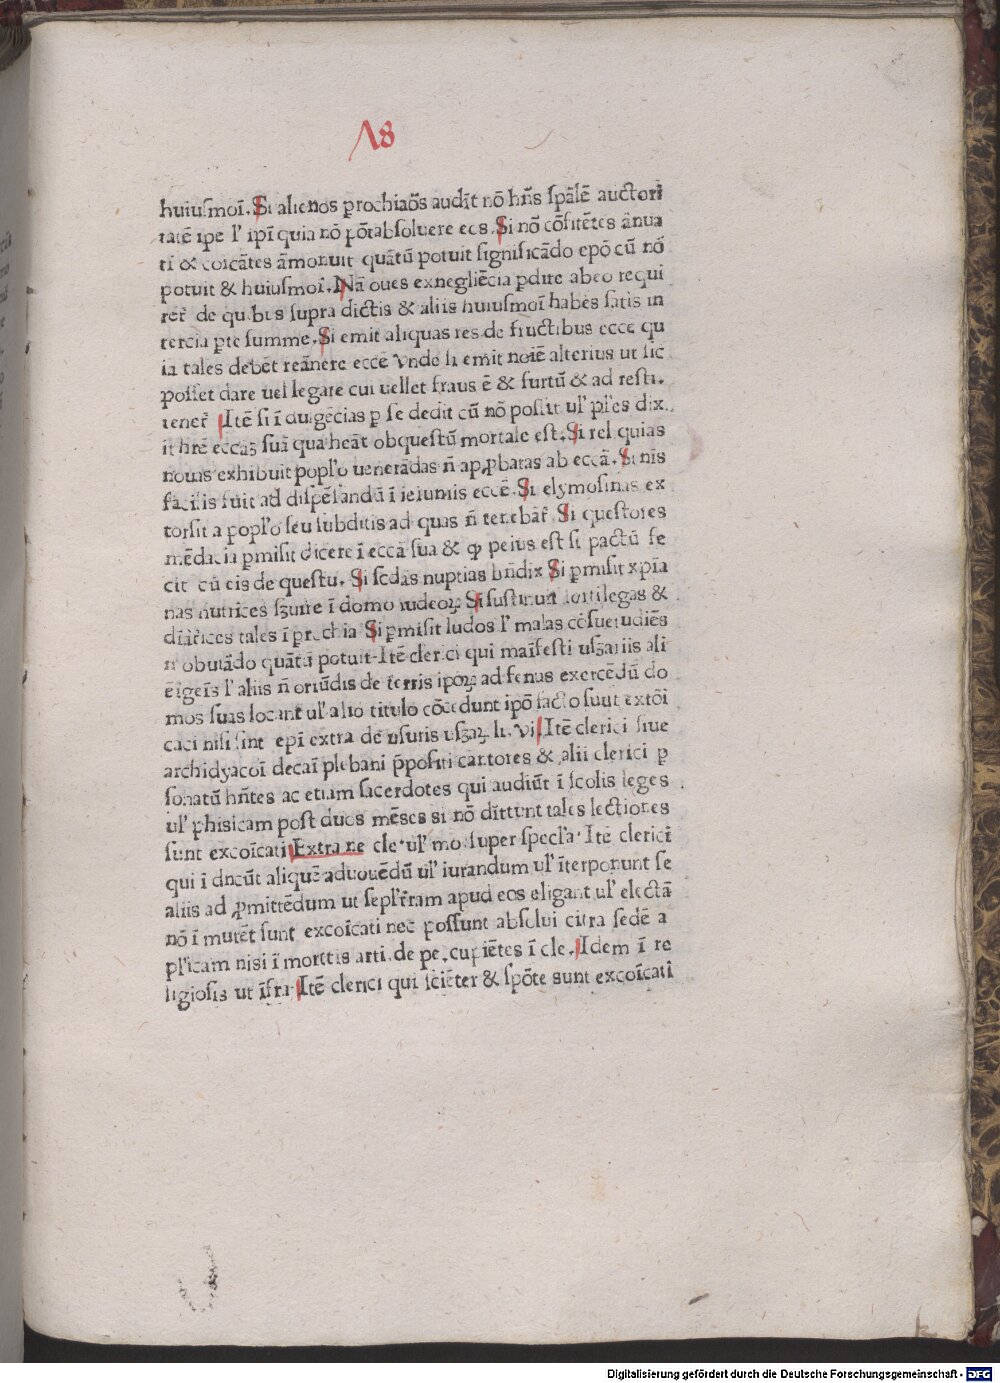 Λ8
huiusmoī. Si alienos prochiaōs audīt nō hn̄s spālē auctori
tatē ipe l' ipī quia nō pōtabsoluere eos. Si nō cōfitētes ānua
tī & coīcātes āmonuit quātū potuit significādo epō cū nō
potuit & huiusmoī. Nā oues exneglīecia pdire abeo requi
ret̄ de quibus supra dictis & aliis huiusmoī habes satis in
tercia pte summe. Si emit aliquas res de fructibus ecce qu
ia tales debēt reānere eccē vnde si emit noīe alterius ut sic
posset dare uel legare cui uellet fraus ē & furtū & ad resti.
tenet̄ Itē si ī dulgēcias p se dedit cū nō possit ul' pl'es dix
it hr̄e eccaȝ suā qua heāt obquestū mortale est. Si reliquias
nouas exhibuit popl'o uenerādas n̄ approbatas ab eccā. Si nīs
facilis fuit ad dispēsandū ī ieiuniis eccē. Si elymosinas ex
torsit a popl'o seu subditis ad quas n̄ tenebāt̄ Si questores
mēdacia pmisit dicere ī eccā sua & qp peius est si pactū fe
cit cū eis de questu. Si scdas nuptias bn̄dix Si pmisit xpīa
nas nutrices sȝuire ī domo iudeoꝝ Si sustinuit sortilegas &
dīatrices tales ī prochia Si pmisit ludos l' malas cōsuetudīes
n̄ obuiādo quātū potuit. Itē clerici qui maīfesti usȝariis ali
ēigeīs l' aliis n̄ oriūdis de terris ipoꝝ ad fenus exercēdū do
mos suas locant ul' alio titulo cōcedunt ipō facto suut extōi
caci nisi sint epī extra de usuris usȝaꝝ li. vi Itē clerici siue
archidyacoī decaī plebani p̄positi cantores & alii clerici p
sonatū hn̄tes ac etiam sacerdotes qui audiūt ī scolis leges
ul' phisicam post duos mēses si nō dīttunt tales lectiones
sunt excoīcati Extra ne cle. ul' mo. super specl'a. Itē clerici
qui ī dncūt aliquē aduouēdū ul' iurandum ul' īterponunt se
aliis ad p̄mittēdum ut sepl't̄ram apud eos eligant ul' electā
nō ī mutēt sunt excoīcati nec possunt absolui citra sedē a
pl'icam nisi ī morttis arti. de pe. cupiētes ī cle. Idem ī re
ligiosis ut īfra Itē clerici qui sciēter & spōte sunt excoīcati
Digitalisierung gefördert durch die Deutsche Forschungsgemeinschaft - DFG